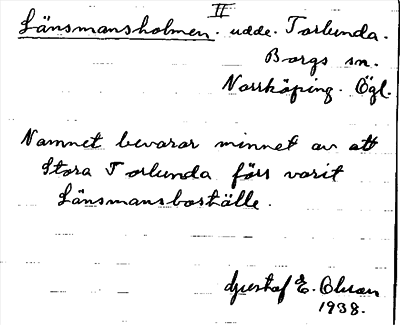 II
Länsmansholmen. udde. Torlunda.
Borgs sn.
Norrköping. Ögl.
Namnet bevarar minnet av att
Stora Torlunda förr varit
Länsmansboställe.
Gustaf E. Olsson
1938.